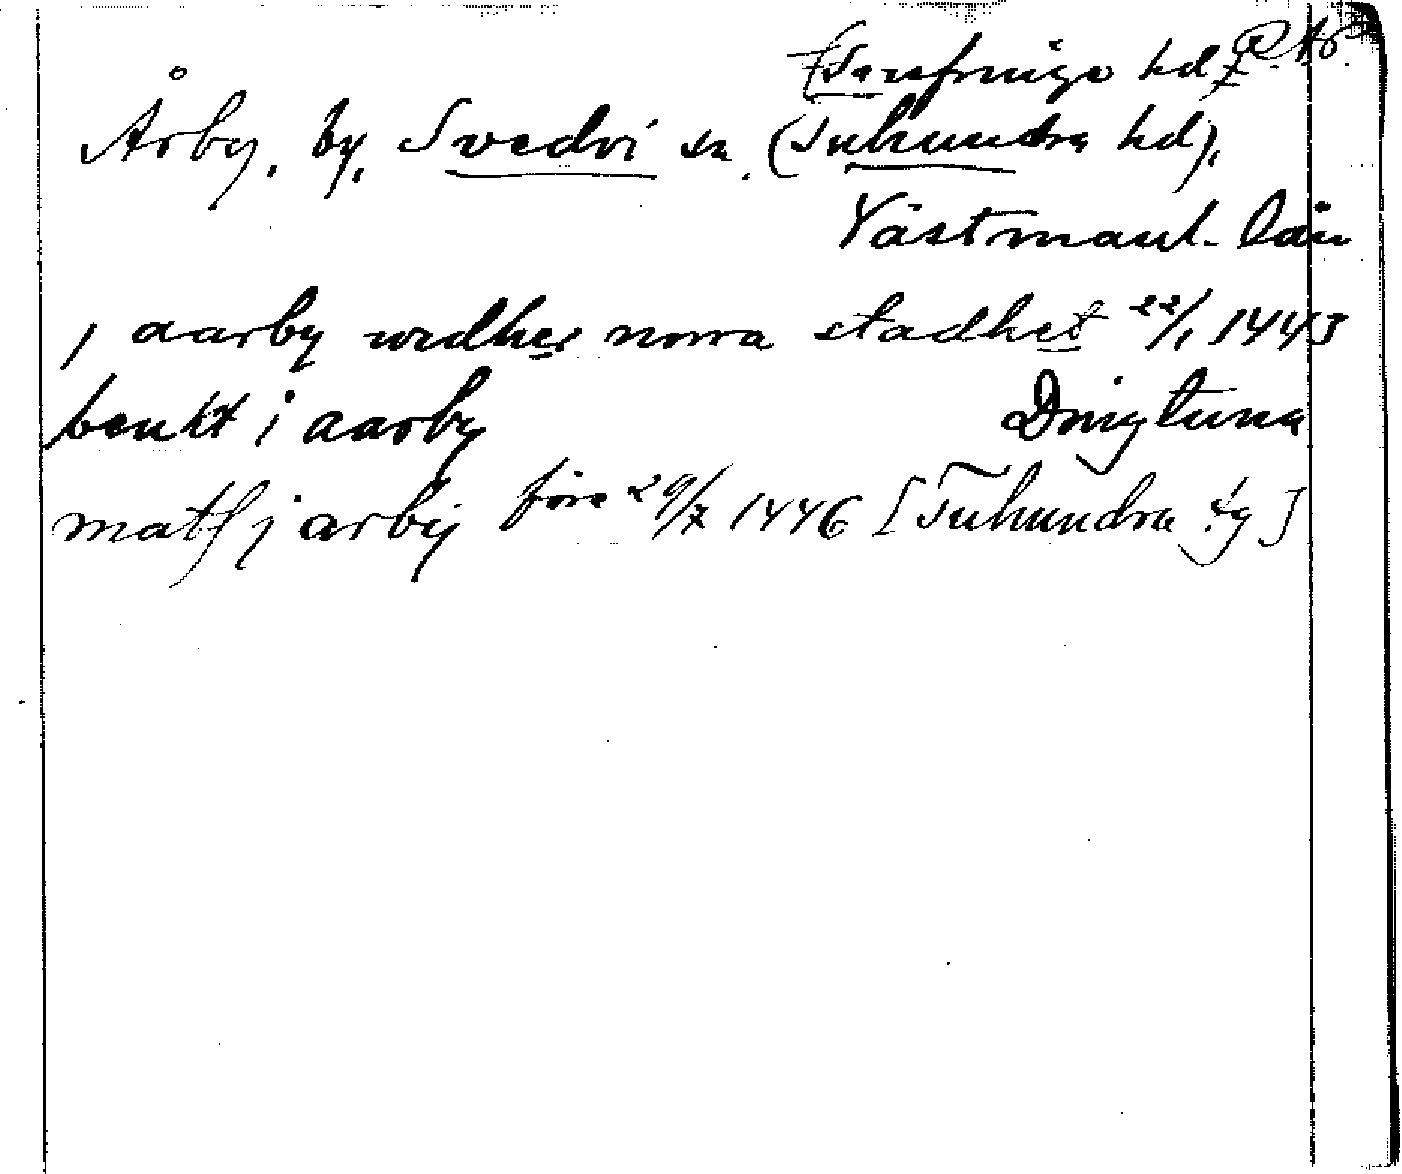 [Snefringe hd] RAp.
Årby, by, Svedvi sn. (Tuhundra hd),
Västmanl. län
j aarby widher nørra stadhet 22/1 1443
benkt i aarby Dingtuna
mats j arby före 29/7 1446 [Tuhundra tg]